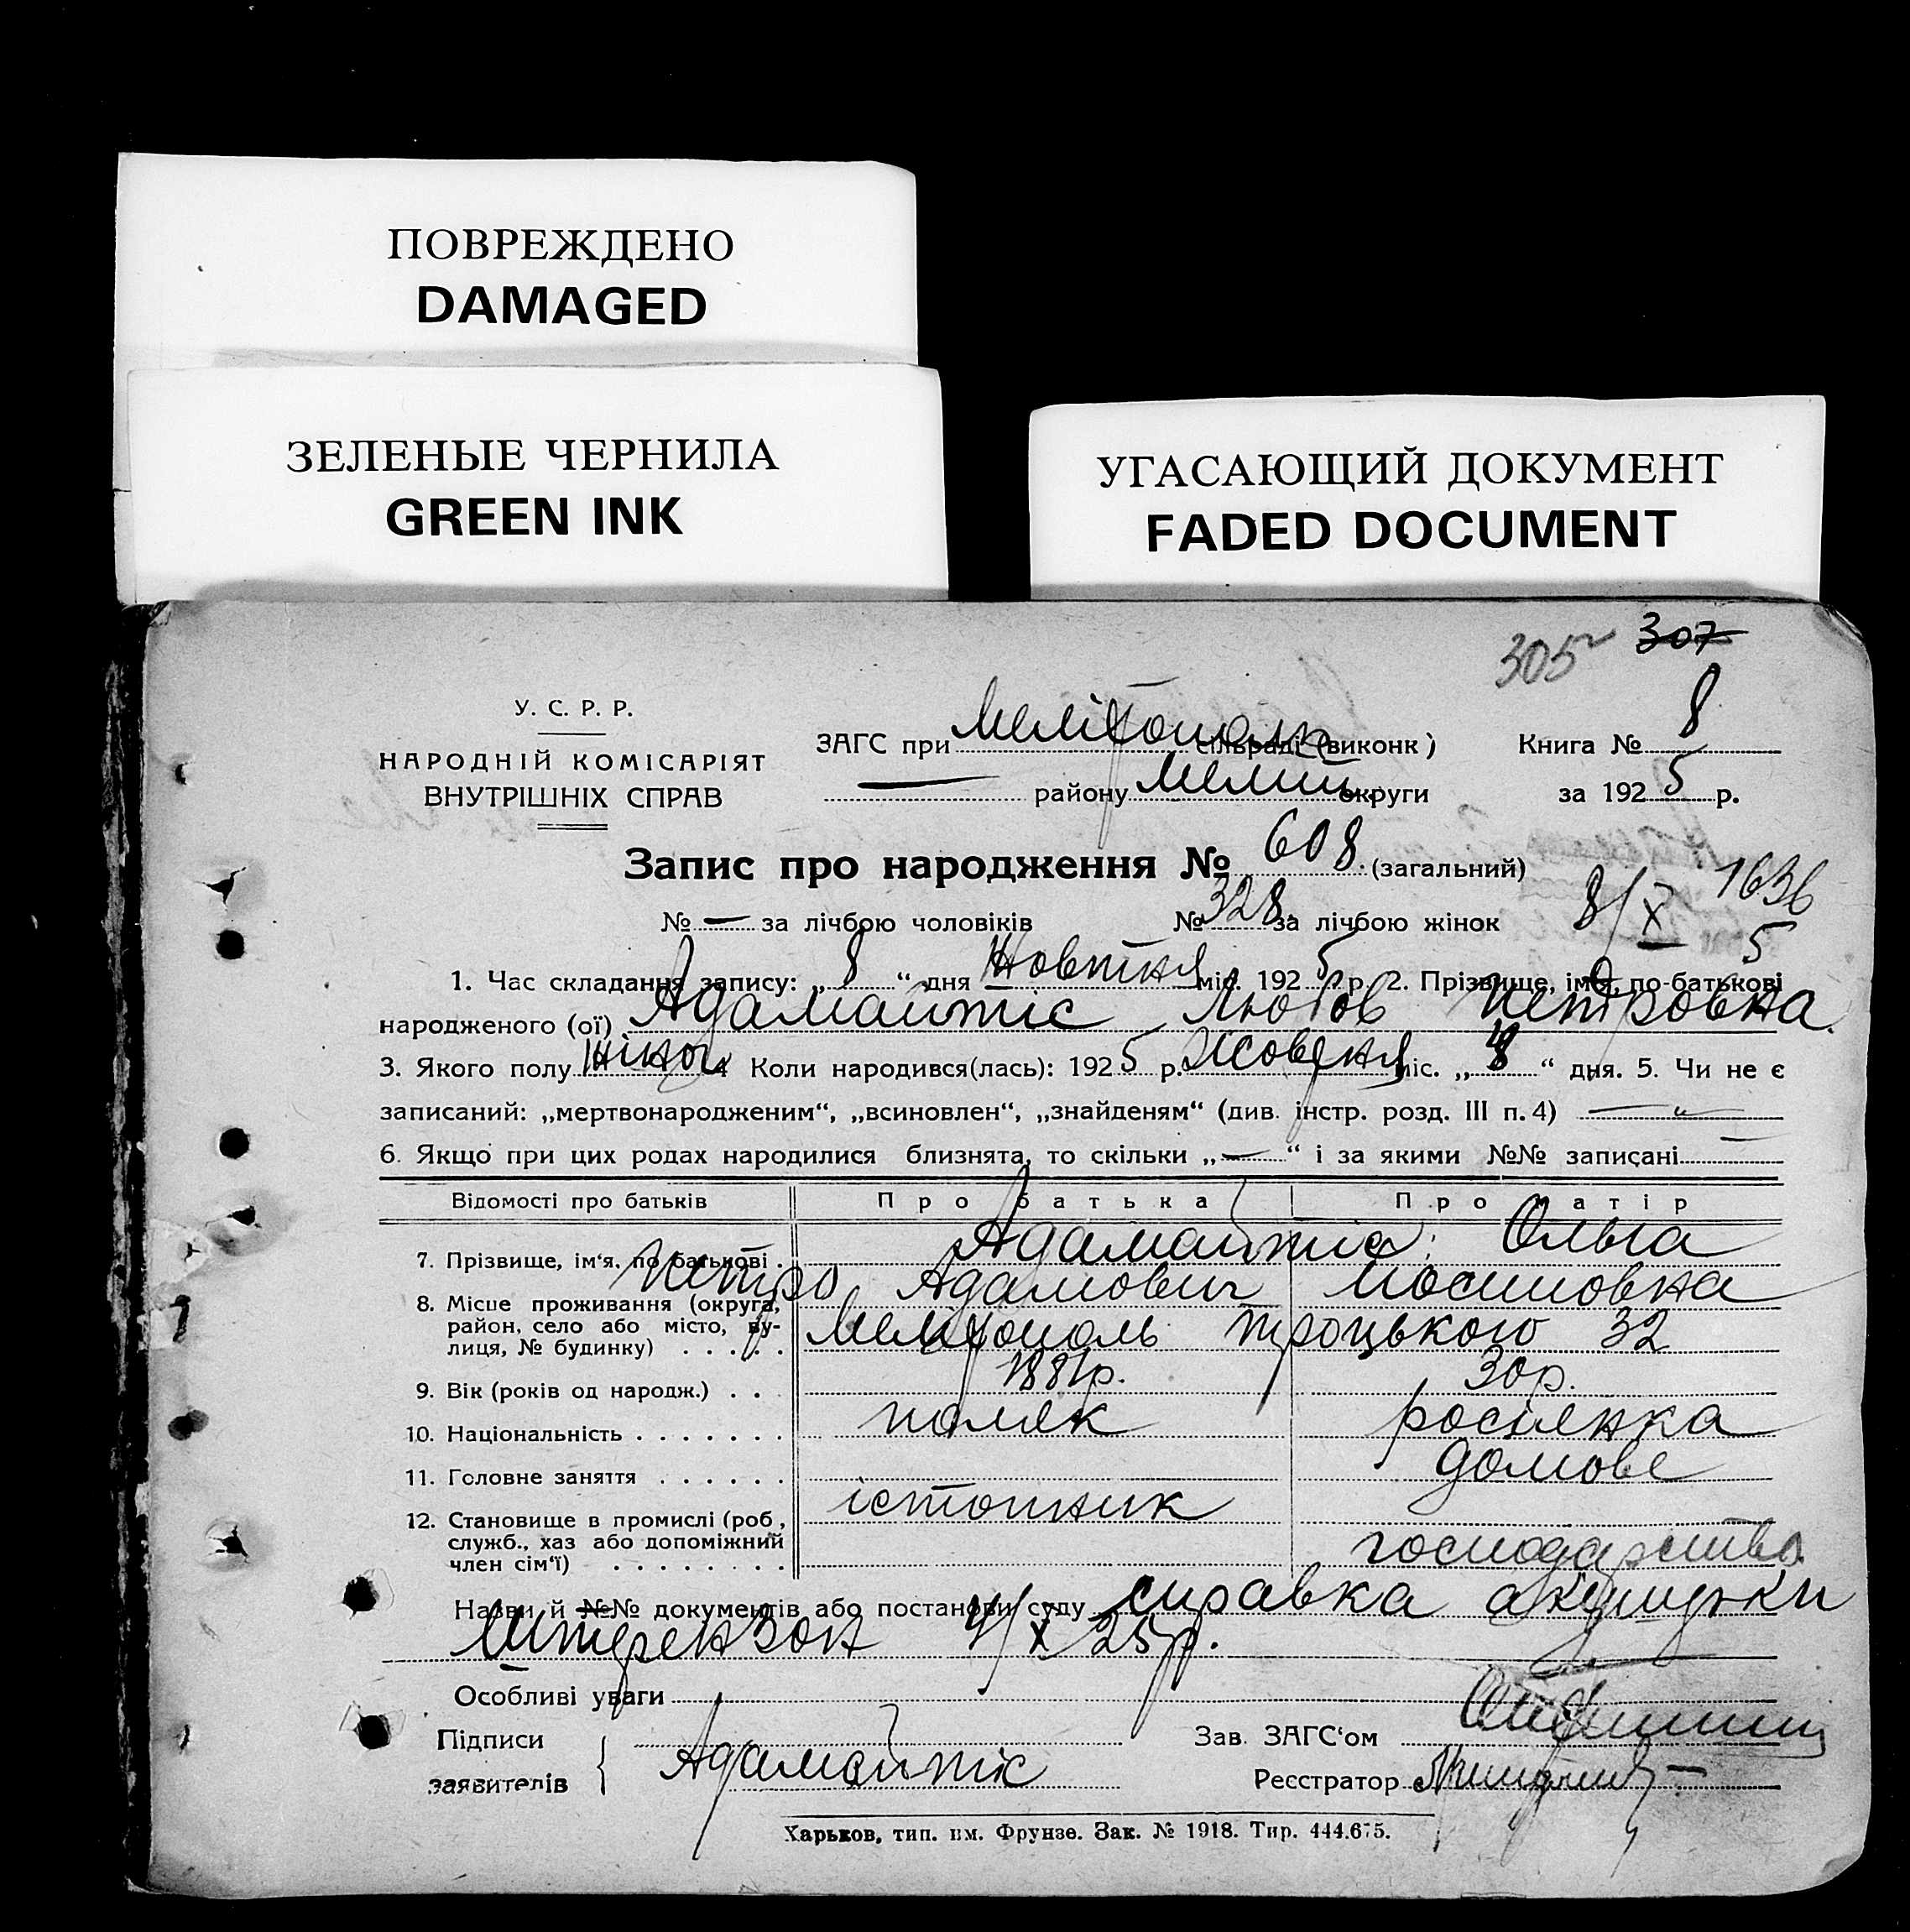 ПОВРЕЖДЕНО
DAMAGED
ЗЕЛЕНЫЕ ЧЕРНИЛА
GREEN INK
УГАСАЮЩИЙ ДОКУМЕНТ
FADED DOCUMENT
305 307
У. С. Р. Р.
НАРОДНІЙ КОМІСАРІЯТ
ВНУТРІШНІХ СПРАВ
ЗАГС при Мелітополь сільраді (виконк) Книга № 8
— району Мелит. округи за 1925 р.
Запис про народження № 608 (загальний)
№ — за лічбою чоловіків № 328 за лічбою жінок 8/X 5 1636
1. Час складання запису: „ 8 “ дня Жовтня міс. 1925 р. 2. Прізвище, ім'я, по-батькові
народженого (ої) Адамайтіс Любов Петровна
3. Якого полу жіноч 4 Коли народився(лась): 1925 р. Жовтня міс. „ “ дня. 5. Чи не є
записаний: „мертвонародженим“, „всиновлен“, „знайденям“ (див. інстр. розд. III п. 4) — „ —
6. Якщо при цих родах народилися близнята, то скільки „ — “ і за якими №№ записані —
Відомості про батьків Про батька Про матір
7. Прізвище, ім'я, по батькові . Адамайтіс Ольга
Петро Адамович Йосиповна
8. Місце проживання (округа, район, село або місто, вулиця, № будинку) . . . . . Мелітополь Троцького 32
9. Вік (років од народж.) . . . 1881р. 30р.
10. Національність . . . . . . . поляк росіянка
11. Головне заняття . . . . . . домове
12. Становище в промислі (роб, служб., хаз або допоміжний член сім'ї) . . . . . . . істопник господарство
Назви й №№ документів або постанови суду справка акушерки
4/X 25р.
Особливі уваги
Підписи Зав. ЗАГС'ом
заявителів { Адамайтіс Реєстратор
Харьков, тип. им. Фрунзе. Зак. № 1918. Тир. 444.675.